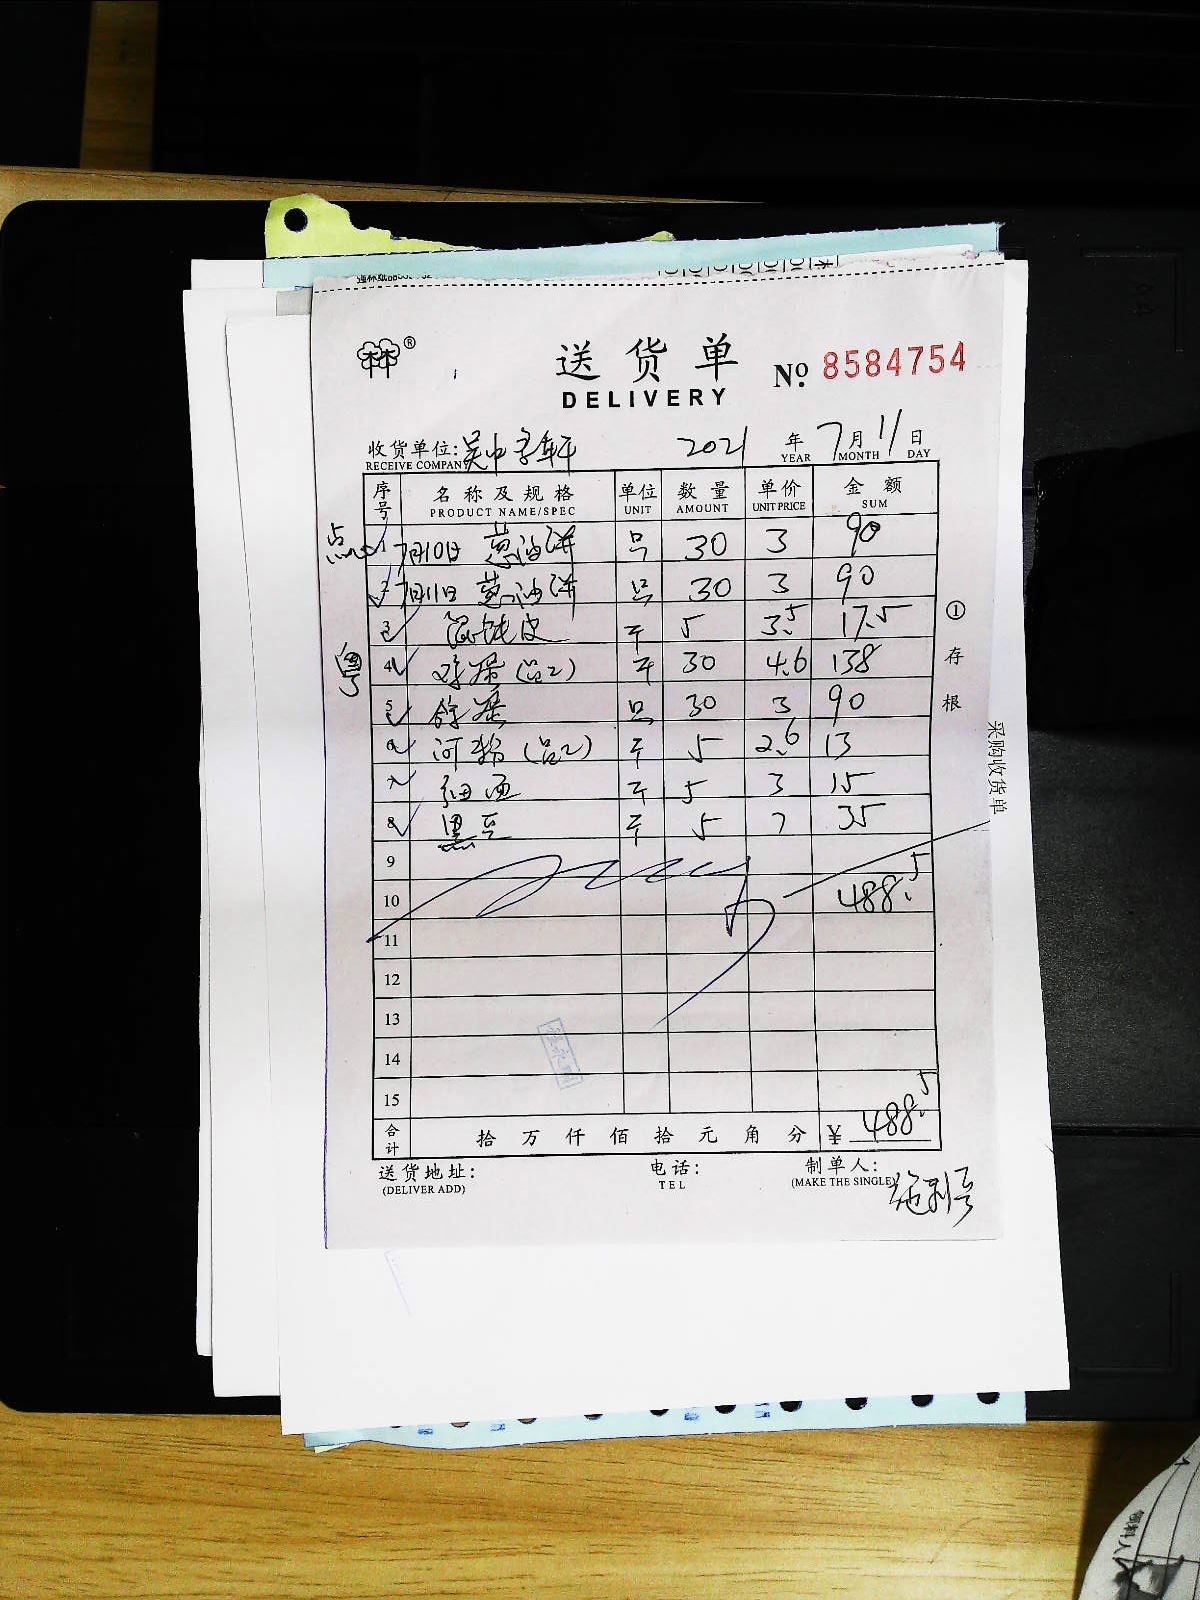 林®
送货单
DELIVERY
No. 8584754
收货单位: 吴中 轩 2021 年 7 月 11 日
RECEIVE COMPANY YEAR MONTH DAY
序号 名称及规格 单位 数量 单价 金额
PRODUCT NAME/SPEC UNIT AMOUNT UNIT PRICE SUM
点心
1 7月10日 葱油饼 只 30 3 90
2 7月11日 葱油饼 只 30 3 90
3 馄饨皮 斤 5 3.5 17.5
粤
4 鸡蛋 斤 30 4.6 138
5 只 30 3 90
6 河粉 斤 5 2.6 13
7 细面 斤 5 3 15
8 黑豆 斤 5 7 35
9
10 488.5
11
12
13
14
15
合计 拾 万 仟 佰 拾 元 角 分 ¥ 488.5
送货地址: 电话: 制单人:
(DELIVER ADD) TEL (MAKE THE SINGLE)
① 存根
采购收货单
领料人